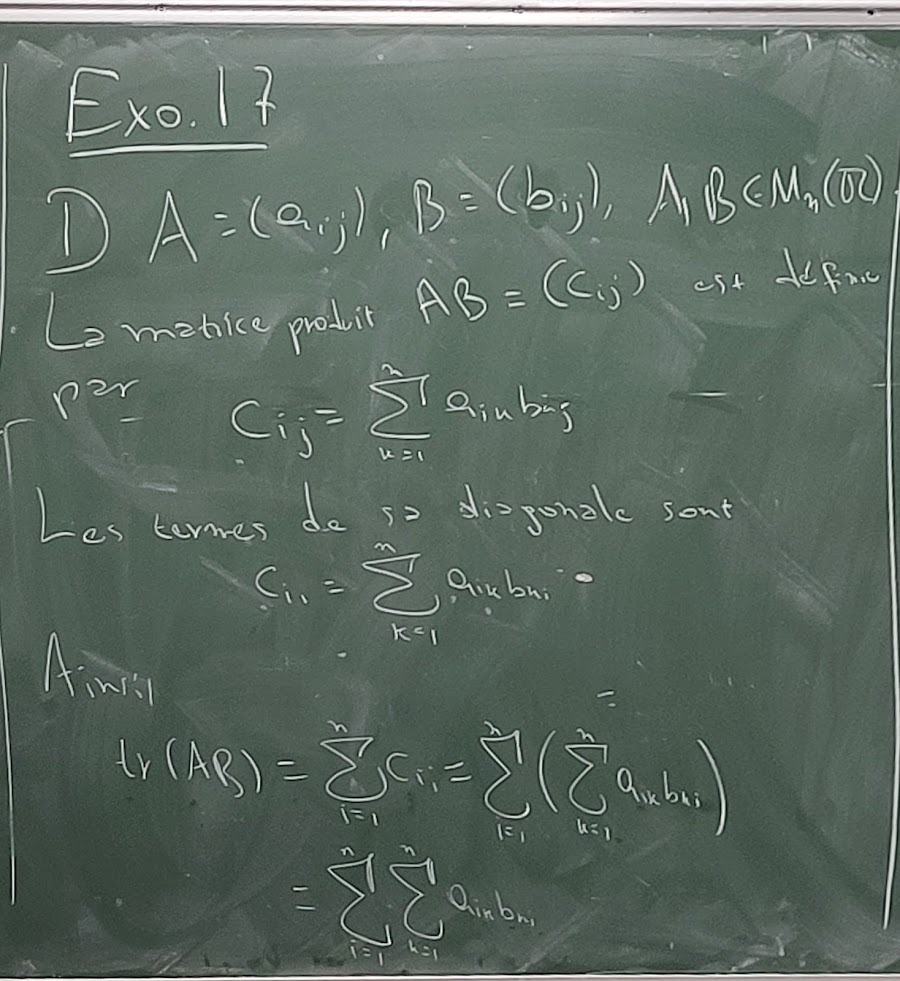 Exo. 17
1) A = (a_{ij}), B = (b_{ij}), A, B ∈ M_n(ℝ).
La matrice produit AB = (c_{ij}) est définie
par c_{ij} = ∑_{k=1}^{n} a_{ik} b_{kj}
Les termes de sa diagonale sont
c_{ii} = ∑_{k=1}^{n} a_{ik} b_{ki}
Ainsi,
tr(AB) = ∑_{i=1}^{n} c_{ii} = ∑_{i=1}^{n} (∑_{k=1}^{n} a_{ik} b_{ki})
= ∑_{i=1}^{n} ∑_{k=1}^{n} a_{ik} b_{ki}